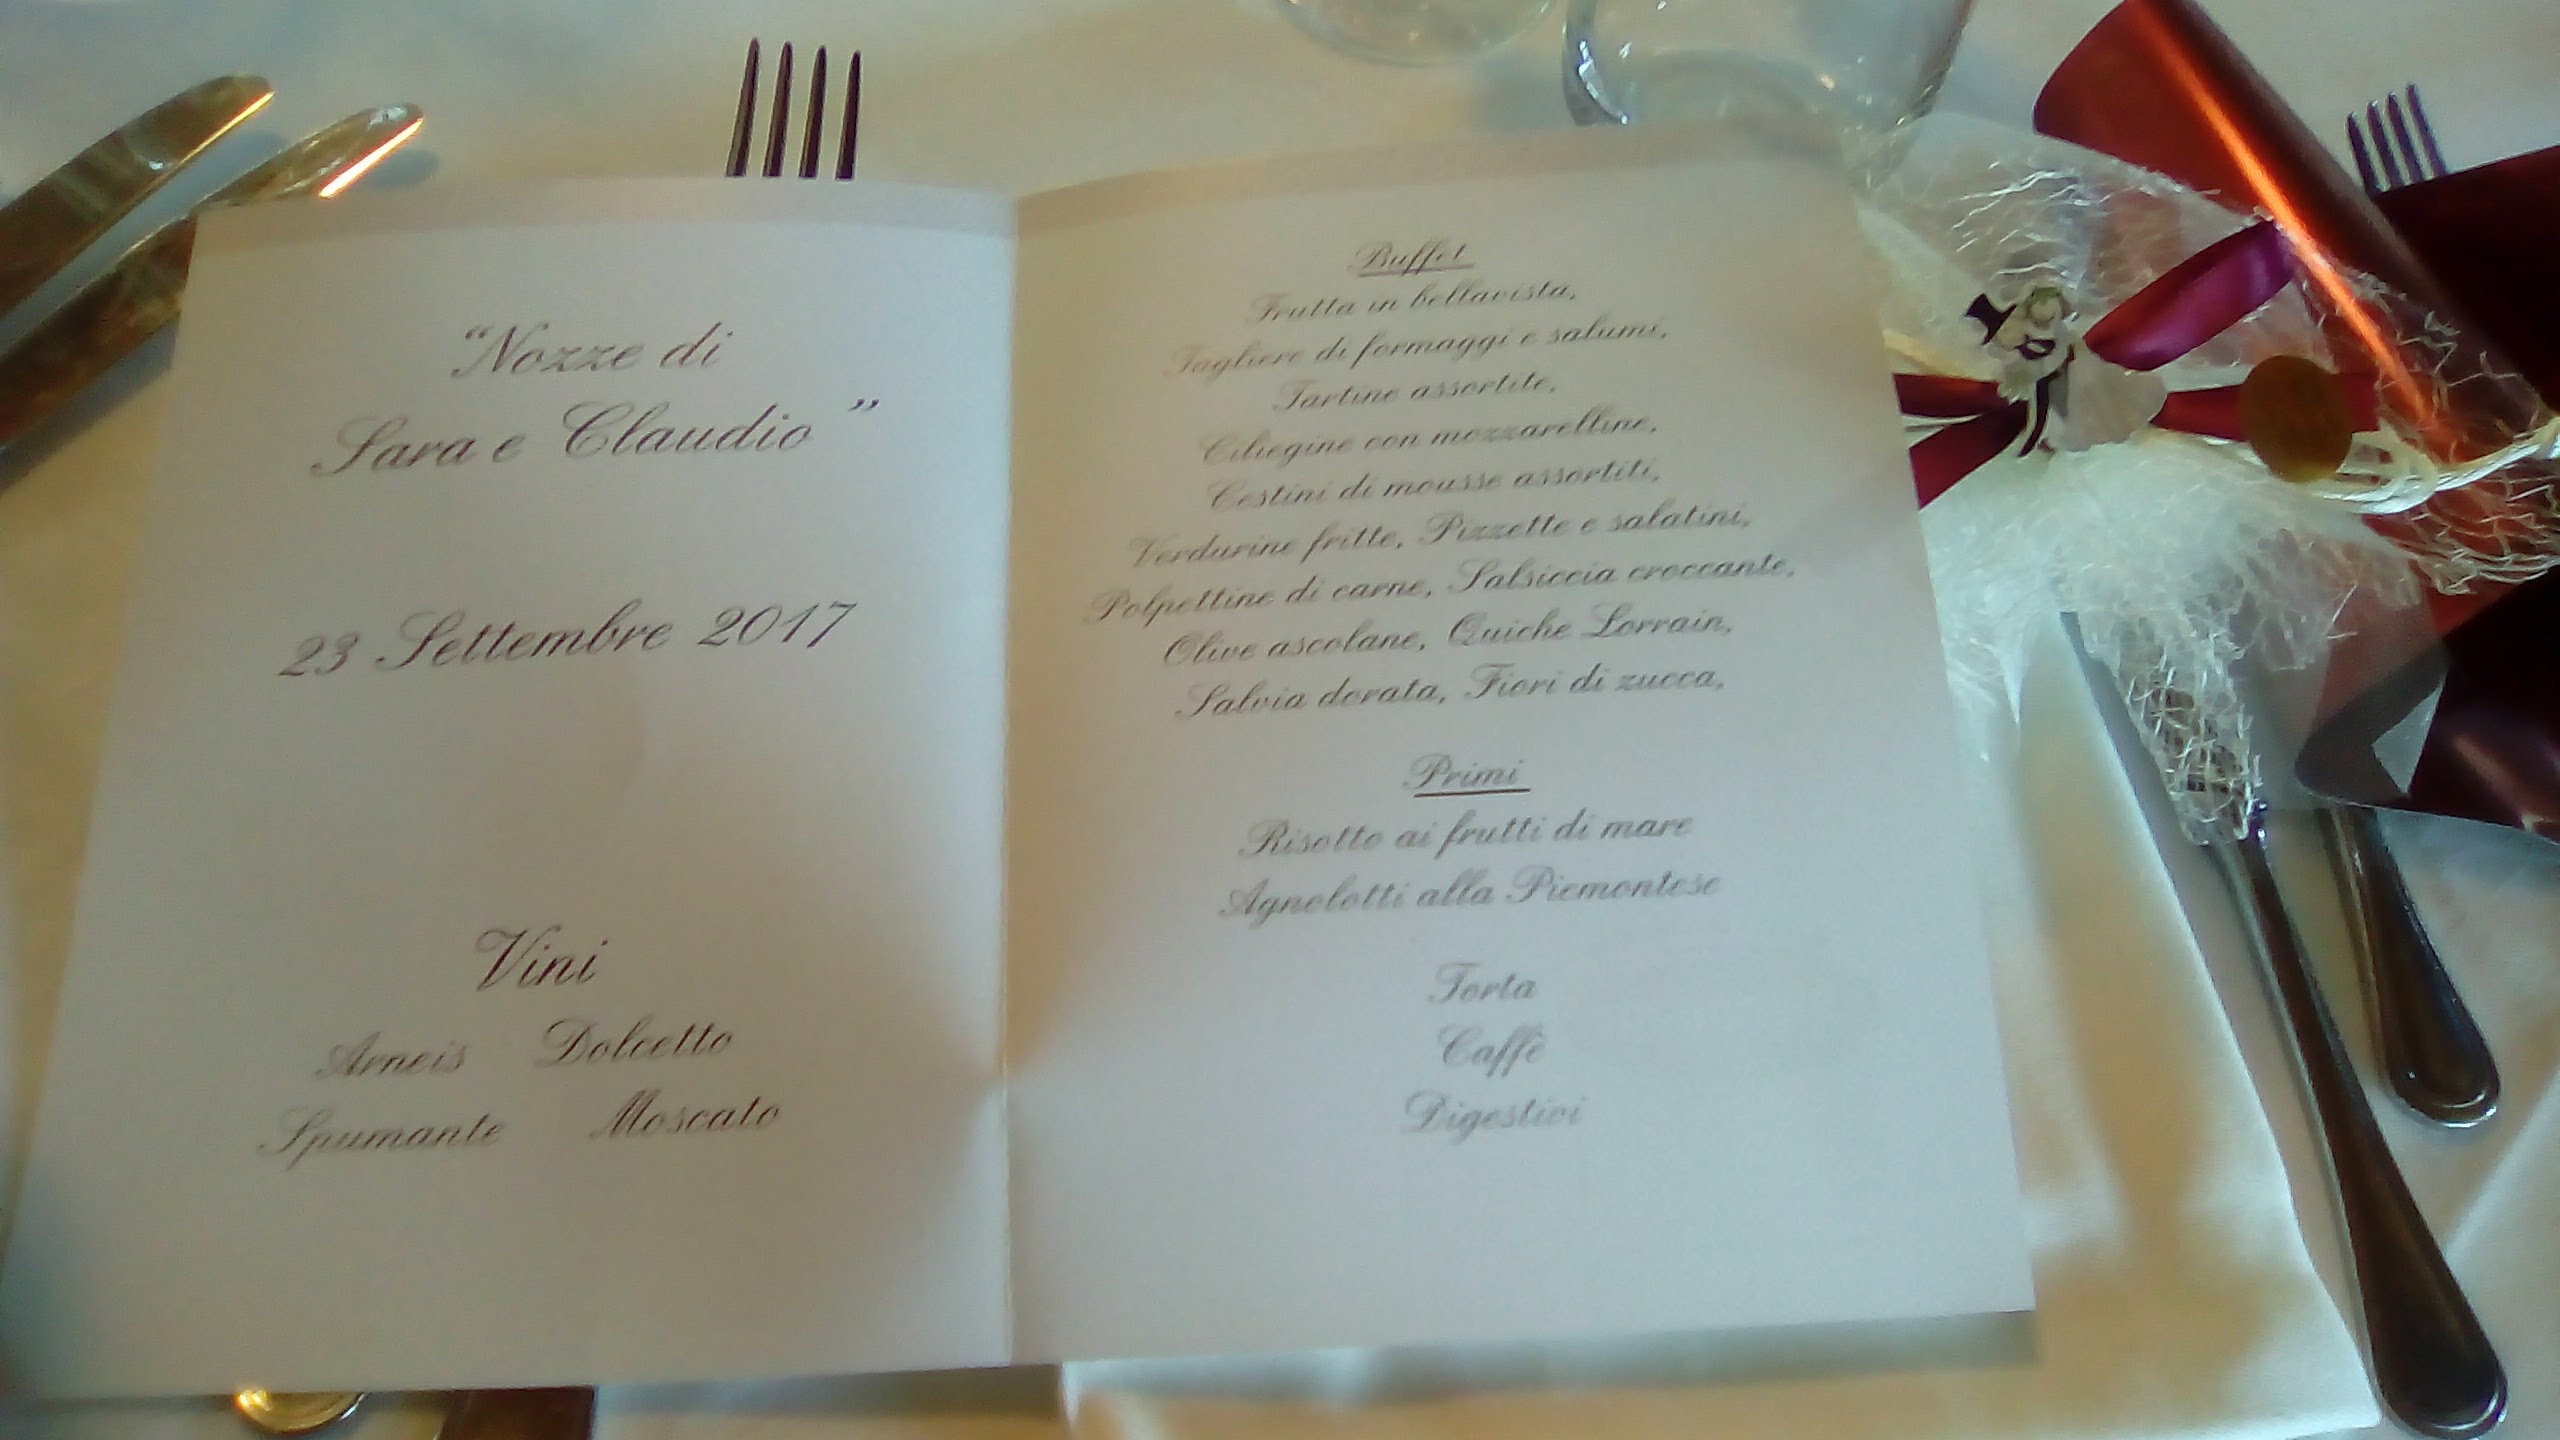 “Nozze di
Sara e Claudio ”
23 Settembre 2017
Vini
Arneis Dolcetto
Spumante Moscato
Buffet
Frutta in bellavista,
Tagliere di formaggi e salumi,
Tartine assortite,
Ciliegine con mozzarelline,
Cestini di mousse assortiti,
Verdurine fritte, Pizzette e salatini,
Polpettine di carne, Salsiccia croccante,
Olive ascolane, Quiche Lorrain,
Salvia dorata, Fiori di zucca,
Primi
Risotto ai frutti di mare
Agnolotti alla Piemontese
Torta
Caffè
Digestivi